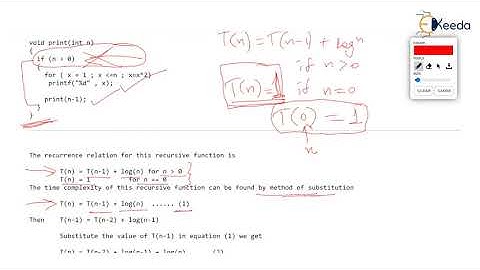 void print(int n)
{
if (n > 0)
{
for ( x = 1 ; x <=n ; x=x*2)
printf("%d" , x);
print(n-1);
}
}
T(n) = T(n-1) + log n
if n>0
T(n) = 1 if n=0
T(0) = 1
n
Keeda
CLEAR
CANCEL
The recurrence relation for this recursive function is
T(n) = T(n-1) + log(n) for n > 0
T(n) = 1 for n == 0
The time complexity of this recursive function can be found by method of substitution
T(n) = T(n-1) + log(n) ...... (1)
Then T(n-1) = T(n-2) + log(n-1)
Substitute the value of T(n-1) in equation (1) we get
T(n) = T(n-2) + log(n-1) + log(n) (2)